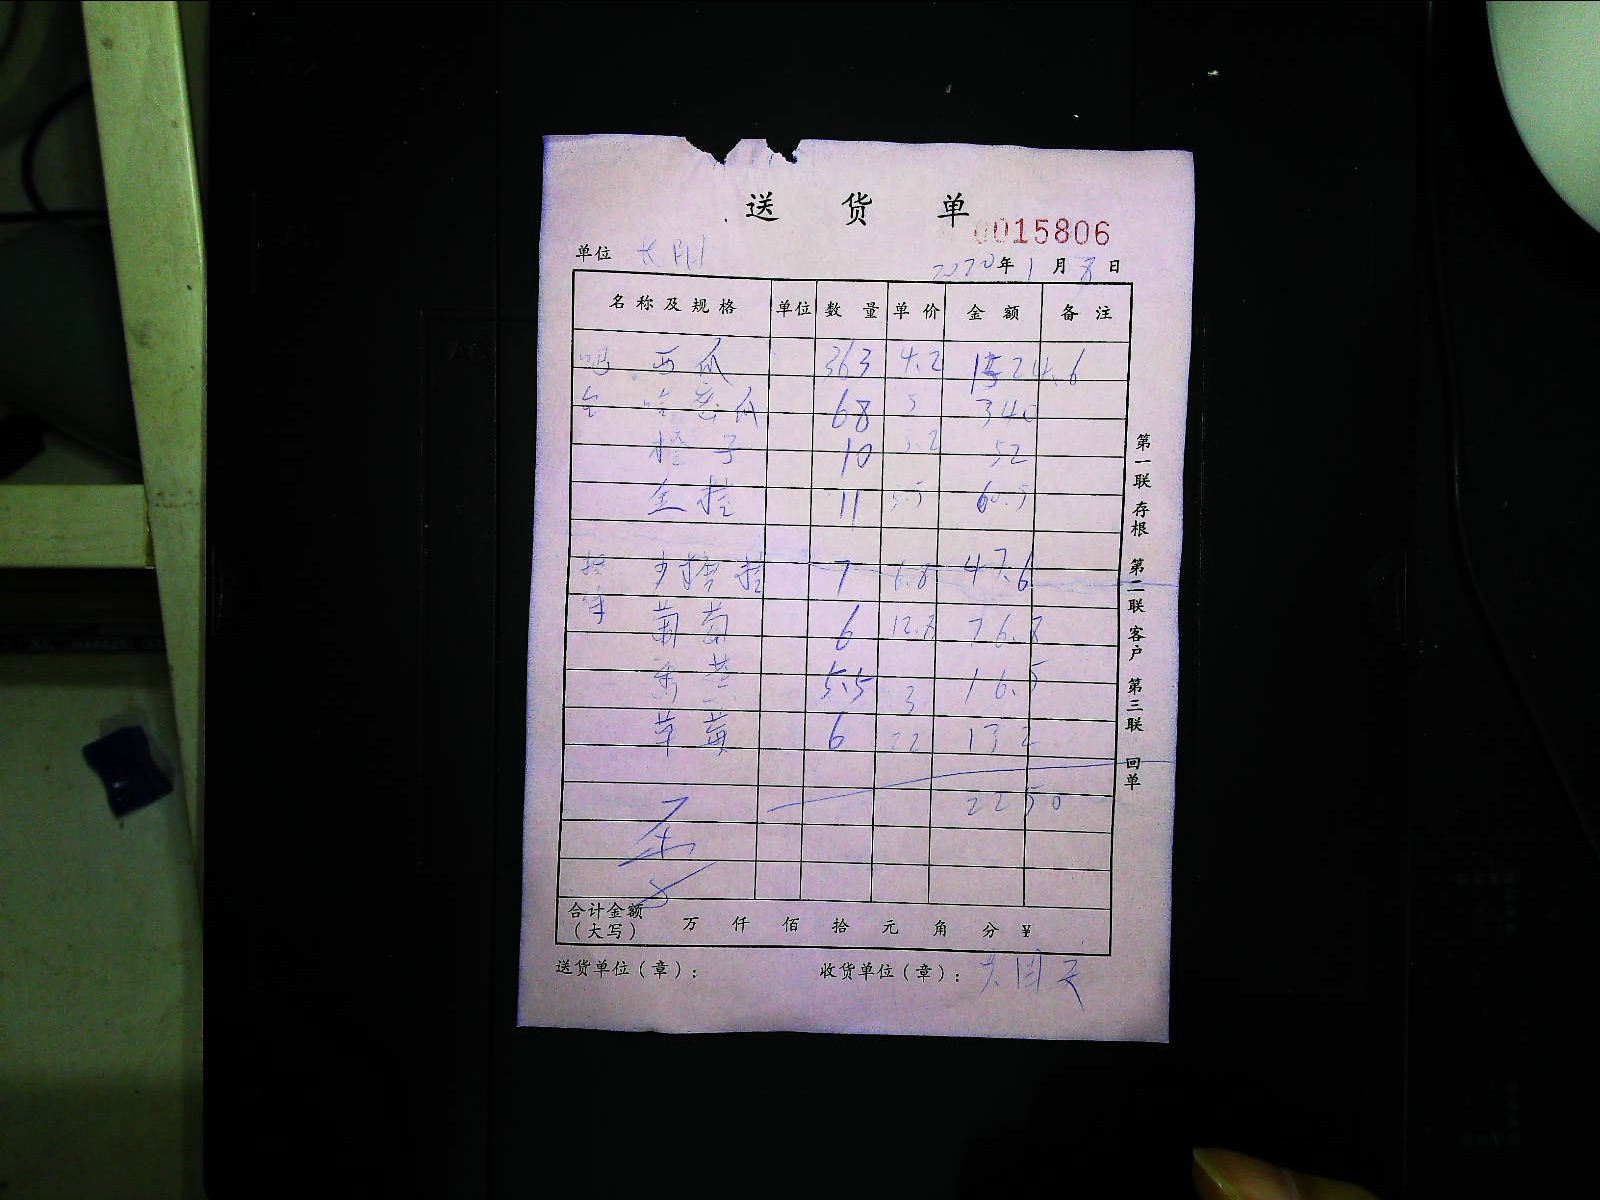 送 货 单
0015806
单位 长刚 2020年1月8日
名称及规格 单位 数量 单价 金额 备注
西瓜 363 4.2 1524.6
哈密瓜 68 5 340
橙子 10 5.2 52
金桔 11 5.5 60.5
沙糖桔 7 6.8 47.6
葡萄 6 12.8 76.8
香芒 5.5 3 16.5
草莓 6 22 132
2250
合计金额(大写) 万 仟 佰 拾 元 角 分 ¥
送货单位(章): 收货单位(章):
第一联 存根 第二联 客户 第三联 回单